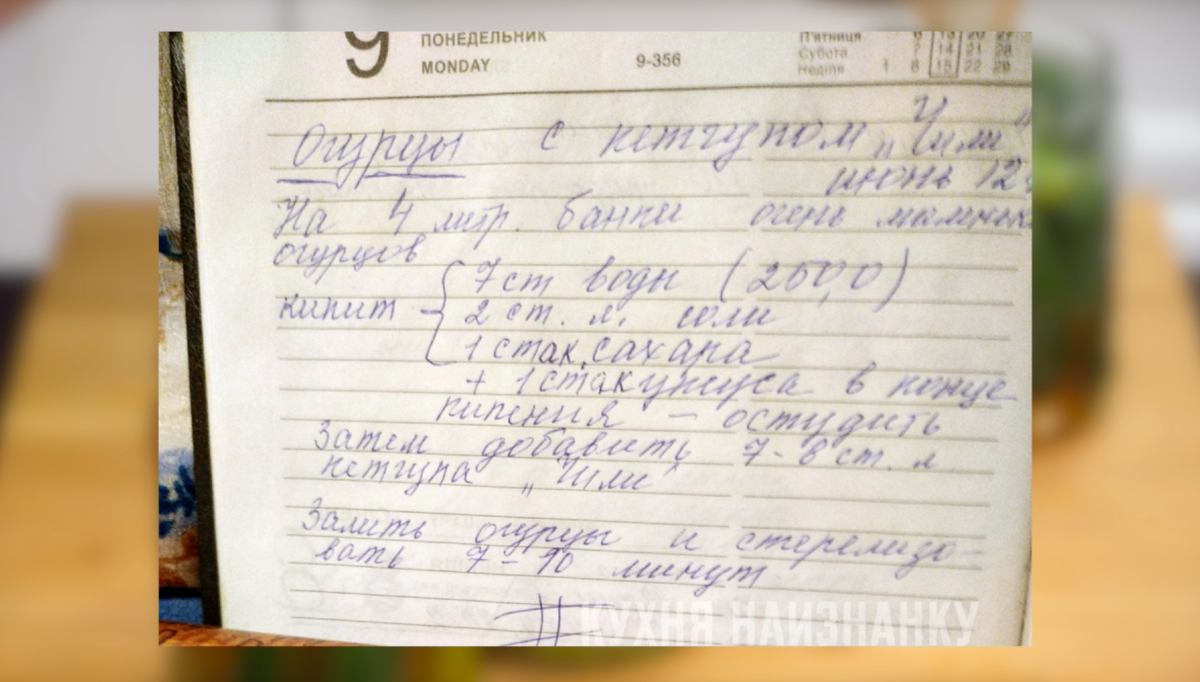 9 ПОНЕДЕЛЬНИК
MONDAY
9-356
П'ятниця 6 13 20 27
Субота 7 14 21 28
Неділя 1 8 15 22 29
Огурцы с кетчупом „Чили"
июнь 12
На 4 литр. банки очень маленьк
огурцов
кипит
7 ст воды (250,0)
2 ст. л. соли
1 стак. сахара
+ 1 стак уксуса в конце
кипения – остудить
Затем добавить 7-8 ст. л.
кетчупа „Чили"
Залить огурцы и стерелизо-
вать 7-10 минут.
КУХНЯ НАИЗНАНКУ